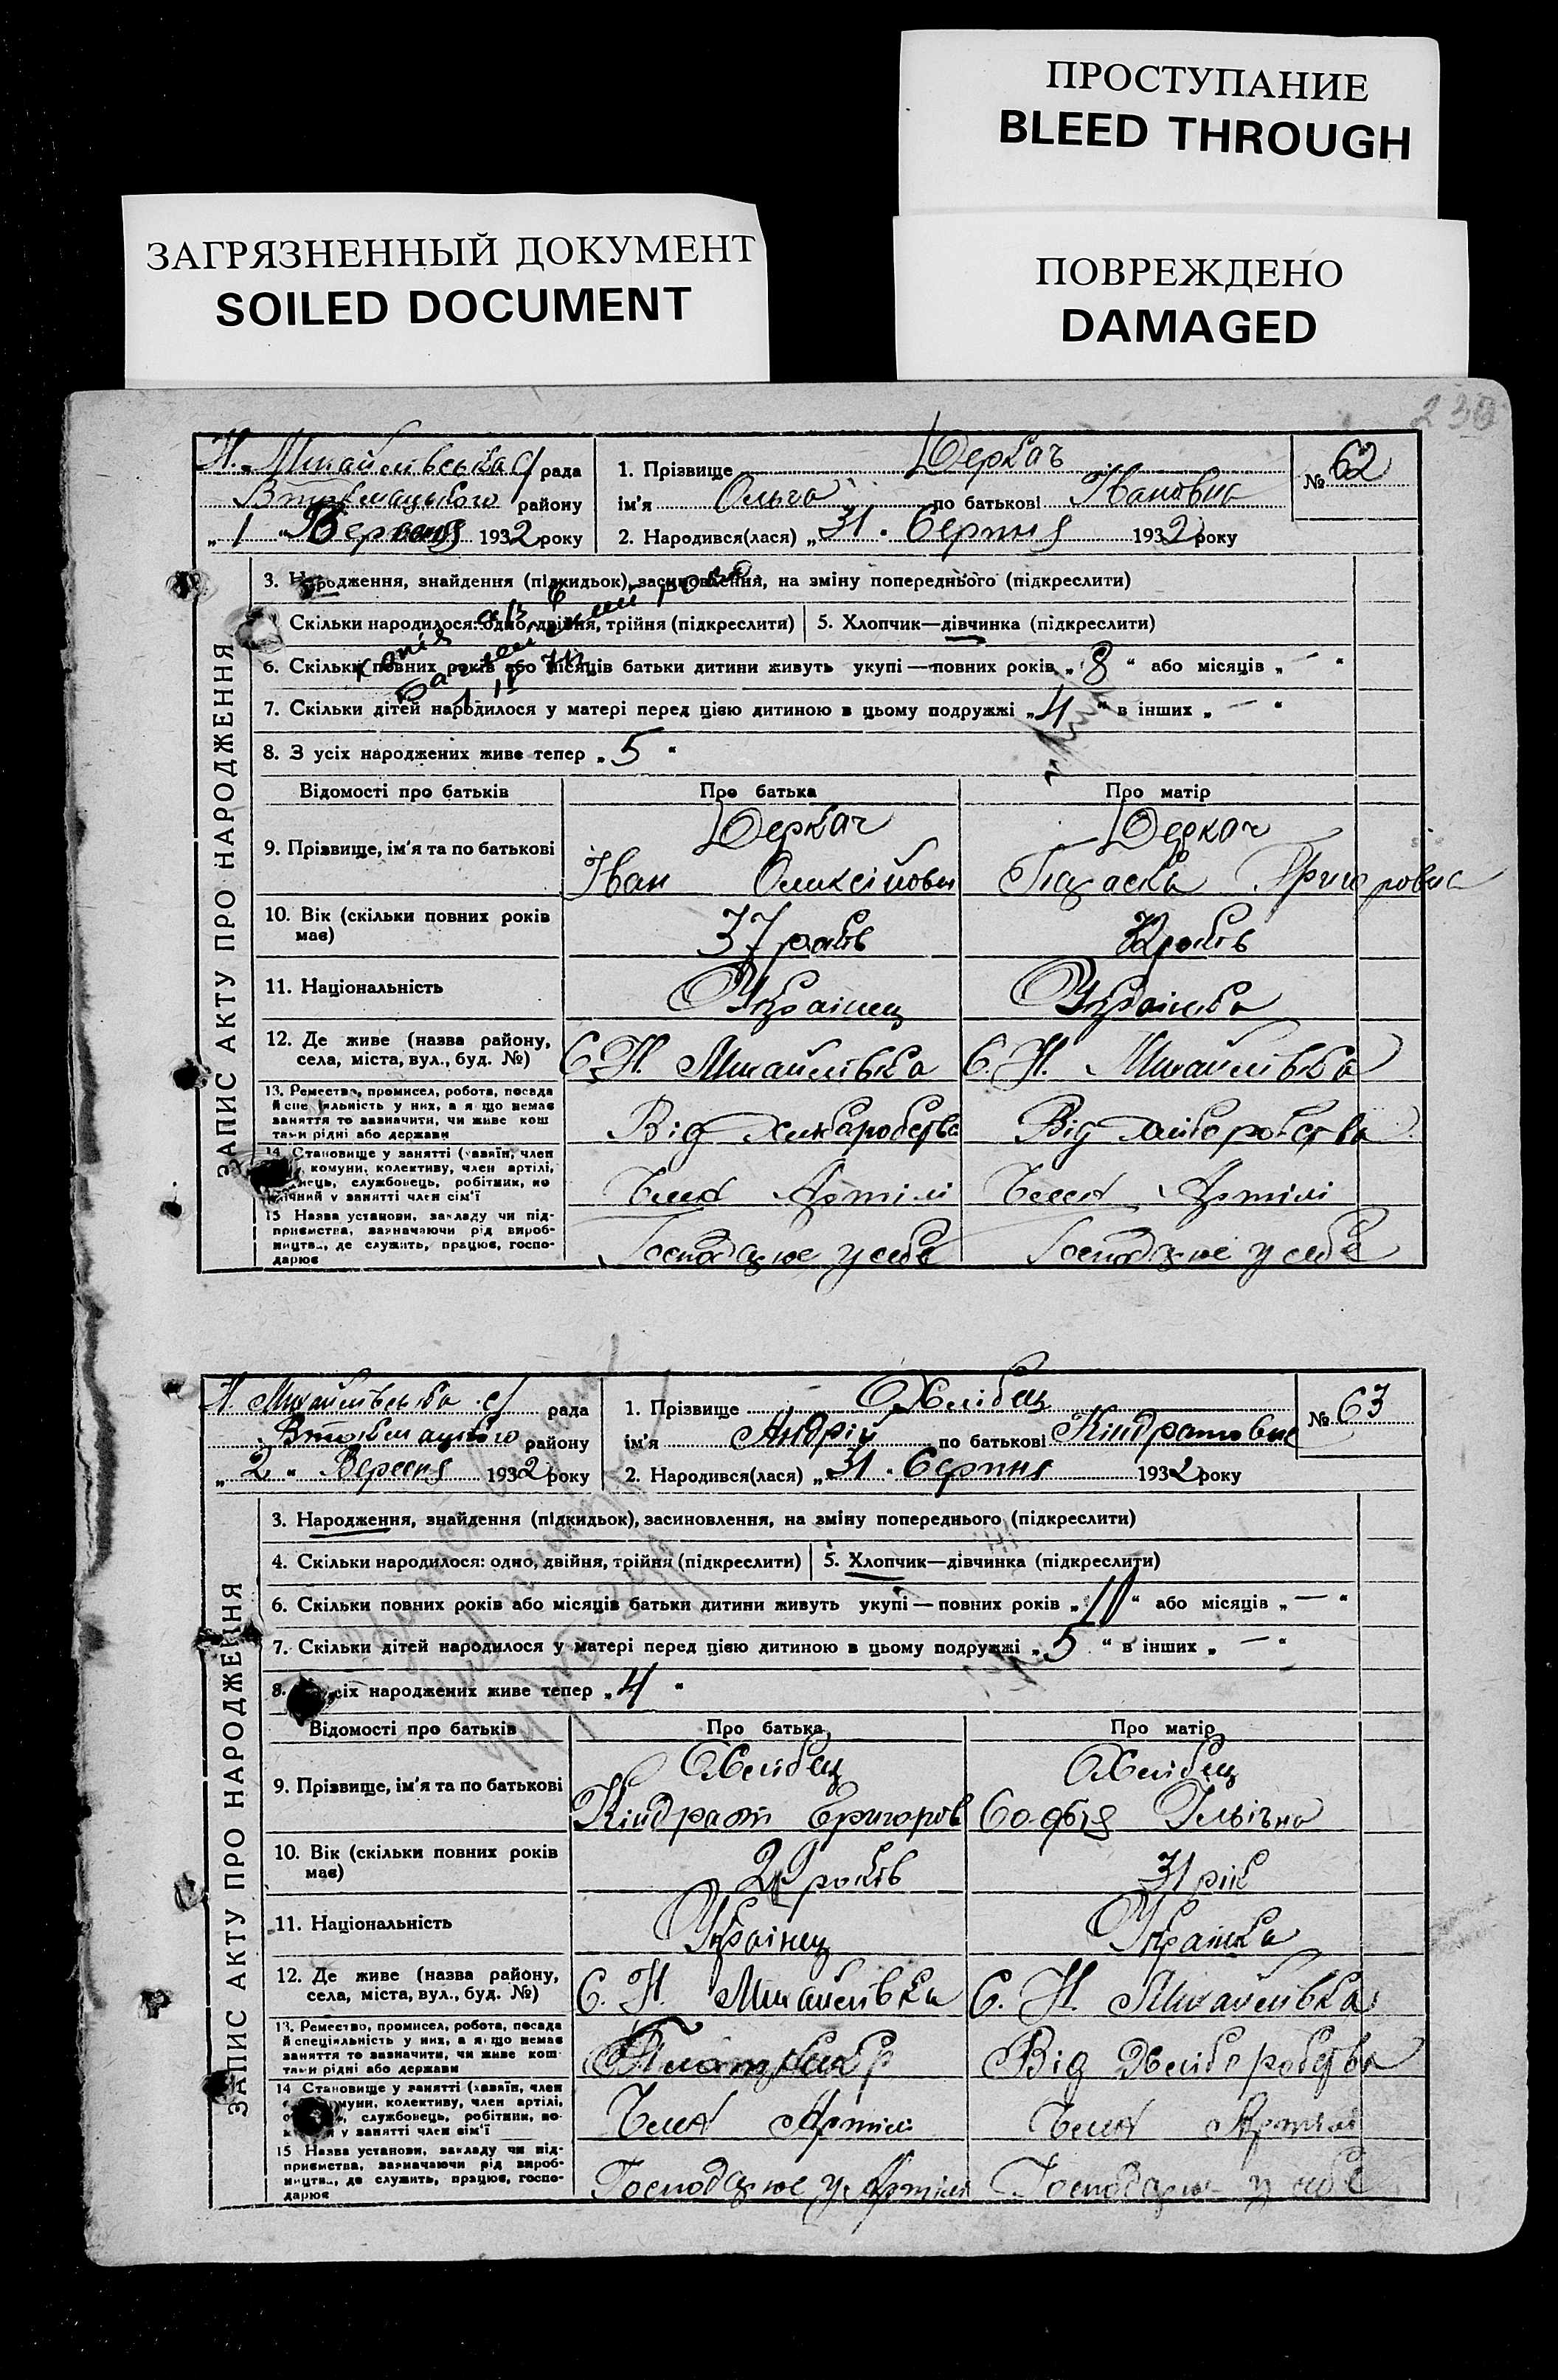 ПРОСТУПАНИЕ
BLEED THROUGH
ЗАГРЯЗНЕННЫЙ ДОКУМЕНТ
SOILED DOCUMENT
ПОВРЕЖДЕНО
DAMAGED
230
Н. Михайлівська с/ рада
району
„ 1 " Вересня 1932 року
1. Прізвище Деркач
ім'я Ольга по батькові Івановна
2. Народився(лася) „ 31 " Серпня 1932 року
№ 62
ЗАПИС АКТУ ПРО НАРОДЖЕННЯ
3. Народження, знайдення (підкидьок), засиновлення, на зміну попереднього (підкреслити)
Скільки народилося: одно, двійня, трійня (підкреслити)
5. Хлопчик—дівчинка (підкреслити)
6. Скільки повних років або місяців батьки дитини живуть укупі—повних років „ 8 " або місяців „ — "
7. Скільки дітей народилося у матері перед цією дитиною в цьому подружжі „ 4 " в інших „ — "
8. З усіх народжених живе тепер „ 5 "
Відомості про батьків Про батька Про матір
9. Прізвище, ім'я та по батькові
Деркач Деркач
Іван Олексійович Параска Григоровна
10. Вік (скільки повних років має)
37 років 32 років
11. Національність
Українец Українка
12. Де живе (назва району, села, міста, вул., буд. №)
С. Н. Михайлівка С. Н. Михайлівка
13. Ремество, промисел, робота, посада й спеціяльність у них, а якщо немає заняття то зазначити, чи живе коштами рідні або держави
Від хліборобства Від хліборобства
14 Становище у занятті (хазяїн, член комуни, колективу, член артілі, службовець, робітник, у занятті член сім'ї
Член Артілі Член Артілі
15 Назва установи, закладу чи підприємства, зазначаючи рід виробництва, де служить, працює, господарює
Господарює у себе Господарює у себе
Н. Михайлівська с/ рада
району
„ 2 " Вересня 1932 року
1. Прізвище Хлібец
ім'я Андрій по батькові Кіндратович
2. Народився(лася) „ 31 " Серпня 1932 року
№ 63
ЗАПИС АКТУ ПРО НАРОДЖЕННЯ
3. Народження, знайдення (підкидьок), засиновлення, на зміну попереднього (підкреслити)
4. Скільки народилося: одно, двійня, трійня (підкреслити)
5. Хлопчик—дівчинка (підкреслити)
6. Скільки повних років або місяців батьки дитини живуть укупі—повних років „ 10 " або місяців „ — "
7. Скільки дітей народилося у матері перед цією дитиною в цьому подружжі „ 5 " в інших „ — "
8. усіх народжених живе тепер „ 4 "
Відомості про батьків Про батька Про матір
9. Прізвище, ім'я та по батькові
Хлібец Хлібец
Кіндрат Григоров Софія Ільічна
10. Вік (скільки повних років має)
років 31 рік
11. Національність
Українец Українка
12. Де живе (назва району, села, міста, вул., буд. №)
С. Н. Михайлівка С. Н. Михайлівка
13. Ремество, промисел, робота, посада й спеціяльність у них, а якщо немає заняття то зазначити, чи живе коштами рідні або держави
Від Хліборобства
14 Становище у занятті (хазяїн, член комуни, колективу, член артілі, службовець, робітник, у занятті член сім'ї
Член Артілі Член Артілі
15 Назва установи, закладу чи підприємства, зазначаючи рід виробництва, де служить, працює, господарює
Господарює у Артілі Господарює у себе